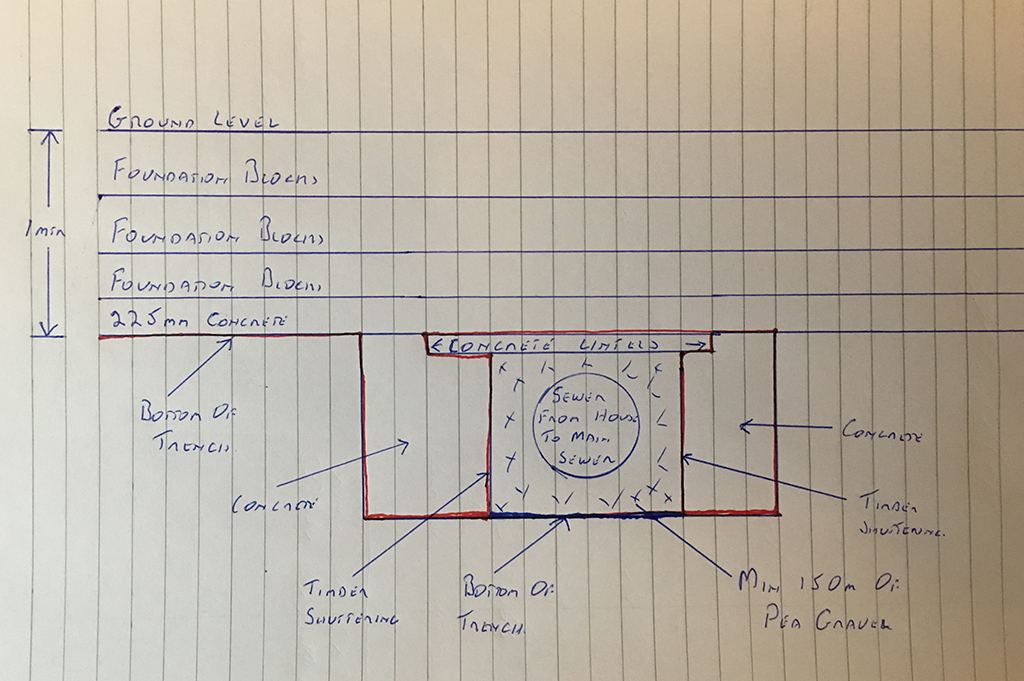 GROUND LEVEL
FOUNDATION BLOCKS
1 MIN
FOUNDATION BLOCKS
FOUNDATION BLOCKS
225MM CONCRETE
CONCRETE LINTELS
BOTTOM OF
TRENCH.
SEWER
FROM HOUSE
TO MAIN
SEWER
CONCRETE
CONCRETE
TIMBER
SHUTTERING.
TIMBER
SHUTTERING
BOTTOM OF
TRENCH.
MIN 150M OF
PEA GRAVEL